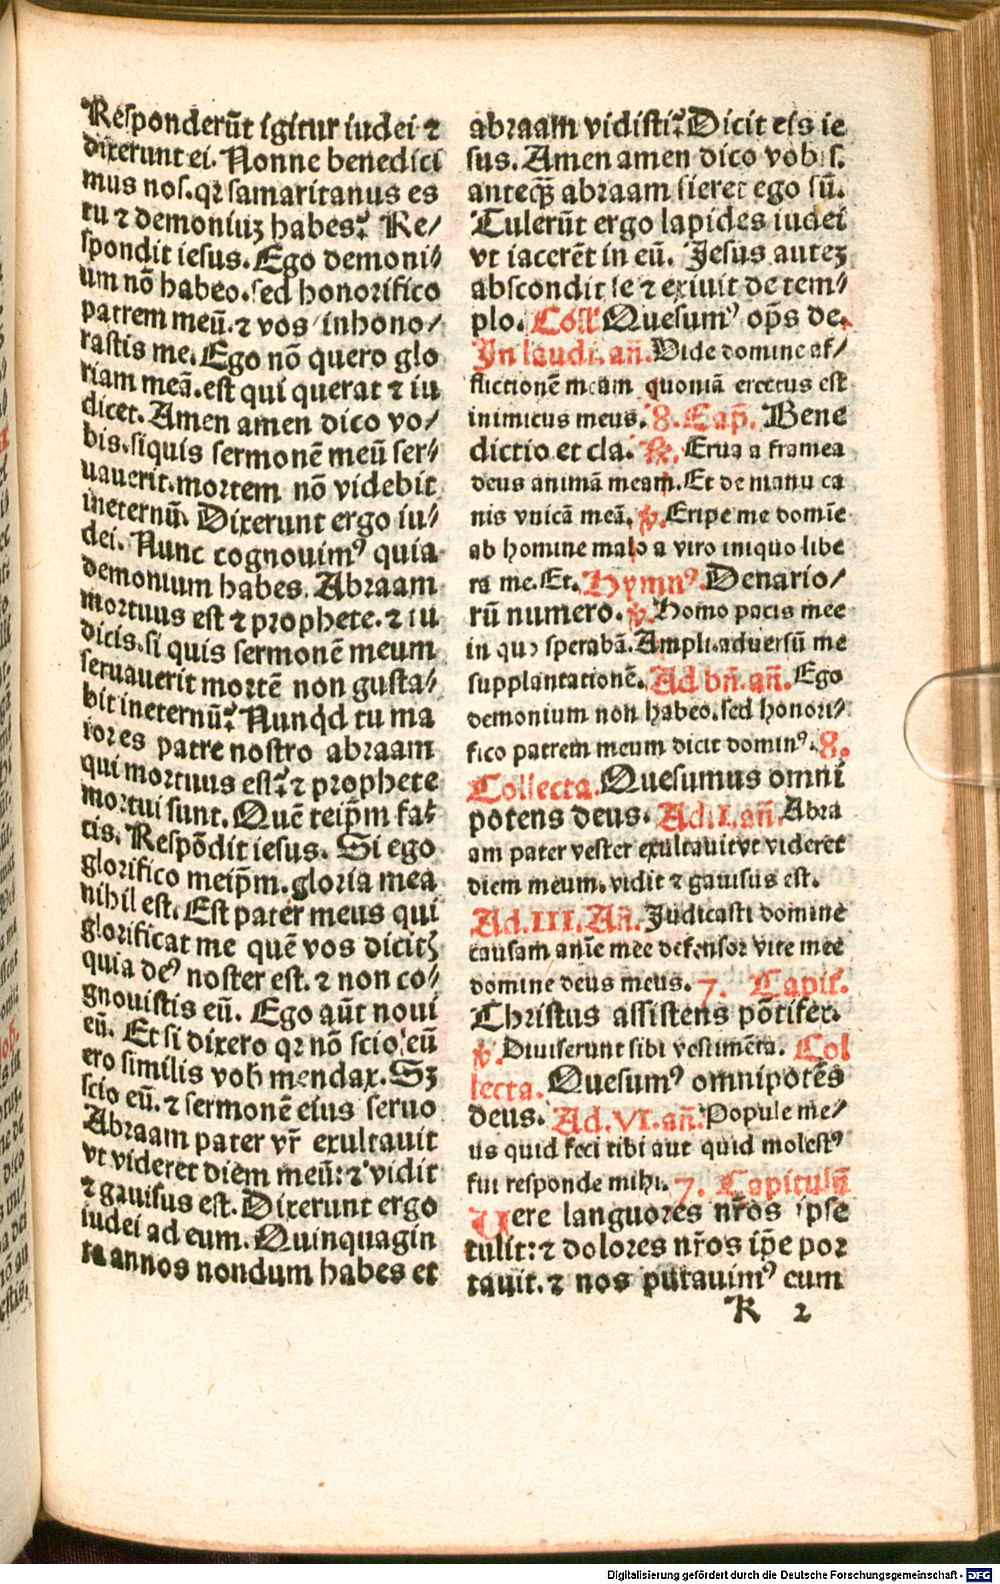 Responderūt igitur iudei ⁊
dixerunt ei. Nonne benedici
mus nos. qꝛ samaritanus es
tu ⁊ demoniuꝫ habes? Re/
spondit iesus. Ego demoni/
um nō habeo. sed honorifico
patrem meū. ⁊ vos inhono/
rastis me. Ego nō quero glo
riam meā. est qui querat ⁊ iu
dicet. Amen amen dico vo/
bis. siquis sermonē meū ser/
uauerit. mortem nō videbit
ineternū. Dixerunt ergo iu/
dei. Nunc cognouimꝰ quia
demonium habes. Abraam
mortuus est ⁊ prophete. ⁊ tu
dicis. si quis sermonē meum
seruauerit mortē non gusta/
bit ineternū? Nunqd tu ma
iores patre nostro abraam
qui mortuus est? ⁊ prophete
mortui sunt. Quē teip̄m fa/
cis. Respōdit iesus. Si ego
glorifico meip̄m. gloria mea
nihil est. Est pater meus qui
glorificat me quē vos dicitꝫ
quia deꝰ noster est. ⁊ non co/
gnouistis eū. Ego aūt noui
eū. Et si dixero qꝛ nō scio eū
ero similis vob mendax. Sꝫ
scio eū. ⁊ sermonē eius seruo
Abraam pater vr̄ exultauit
vt videret diem meū: ⁊ vidit
⁊ gauisus est. Dixerunt ergo
iudei ad eum. Quinquagin
ta annos nondum habes et
abraam vidisti? Dicit eis ie
sus. Amen amen dico vobis.
anteqꝫ abraam fieret ego sū.
Tulerūt ergo lapides iudei
vt iacerēt in eū. Jesus auteꝫ
abscondit se ⁊ exiuit de tem/
plo. Coll Quesumꝰ op̄s de.
In laudi. añ. Vide domine af/
flictionē meam quoniā erectus est
inimicus meus. 8. Cap̄. Bene
dictio et cla. ℟. Erua a framea
deus animā meam. Et de manu ca
nis vnicā meā. ℣. Eripe me domīe
ab homine malo a viro iniquo libe
ra me. Et. Hymnꝰ. Denario/
rū numero. ℣. Homo pacis mee
in quo sperabā. Ampli. aduersū me
supplantationē. Ad bñ. añ. Ego
demonium non habeo. sed honori/
fico patrem meum dicit dominꝰ. 8.
Collecta. Quesumus omni
potens deus. Ad. I. añ. Abra
am pater vester exultauit vt videret
diem meum. vidit ⁊ gauisus est.
Ad. III. Añ. Judicasti domine
causam anīe mee defensor vite mee
domine deus meus. 7. Capit.
Christus assistens pōtifex.
℣. Diuiserunt sibi vestimēta. Col
lecta. Quesumꝰ omnipotēs
deus. Ad. VI. añ. Popule me/
us quid feci tibi aut quid molestꝰ
fui responde mihi. 7. Capitulū
Uere languores nr̄os ipse
tulit: ⁊ dolores nr̄os ip̄e por
tauit. ⁊ nos putauimꝰ eum
K 2
Digitalisierung gefördert durch die Deutsche Forschungsgemeinschaft - DFG